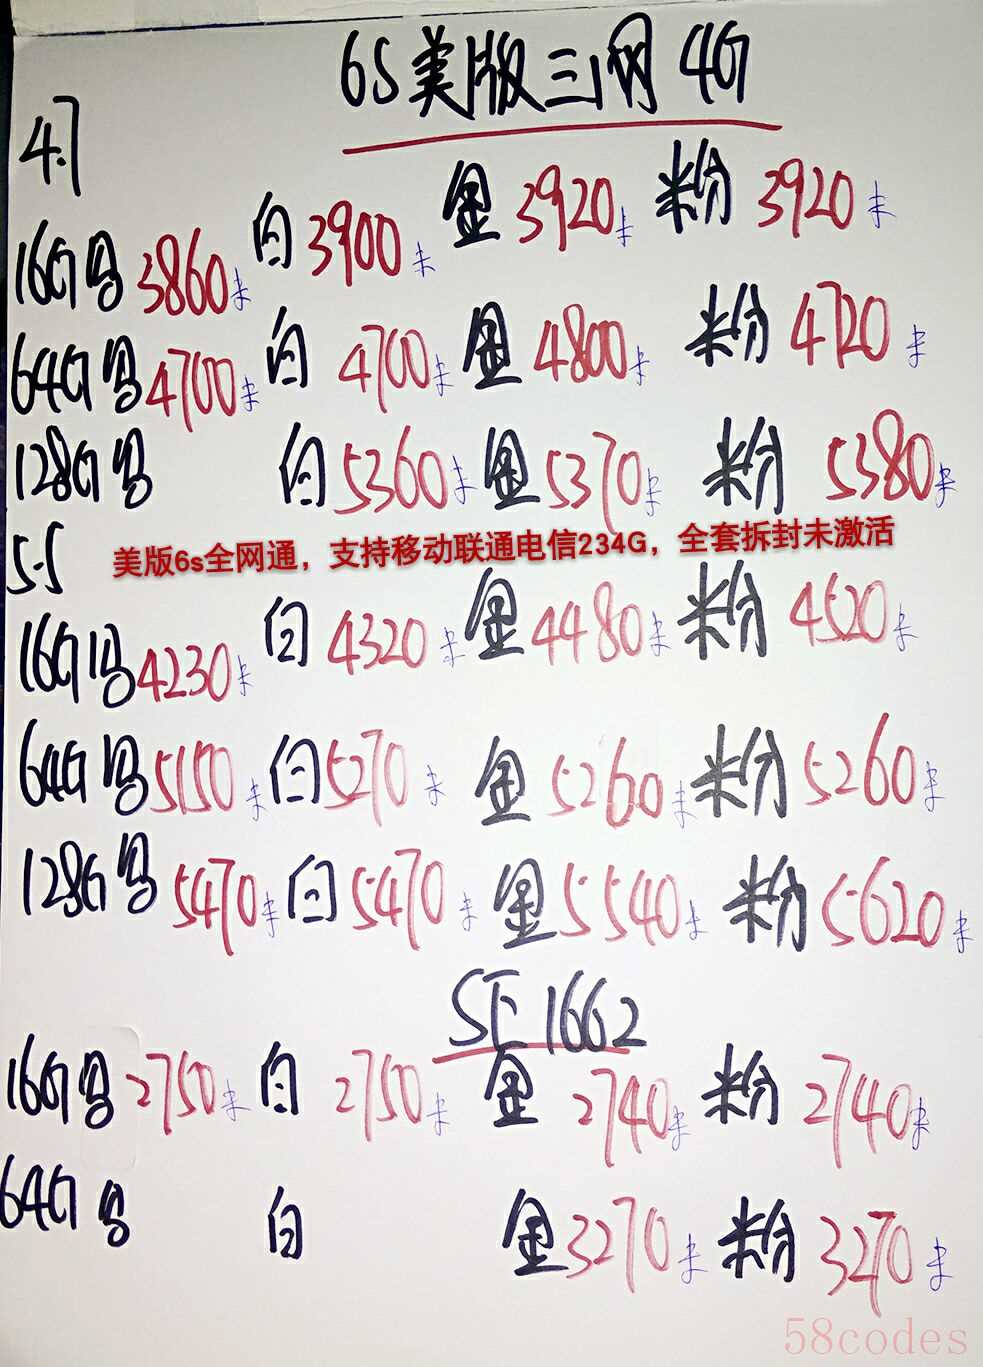 6S美版三网4G
4.7
16G黑3860未 白3900未 金3920未 粉3920未
64G黑4700未 白4700未 金4800未 粉4720未
128G黑 白5360未 金5370未 粉5380未
5.5
美版6s全网通，支持移动联通电信234G，全套拆封未激活
16G黑4230未 白4320未 金4480未 粉4520未
64G黑5150未 白5270未 金5260未 粉5260未
128G黑5470未 白5470未 金5540未 粉5620未
SE 1662
16G黑2750未 白2750未 金2740未 粉2740未
64G黑 白 金3270未 粉3270未
58codes